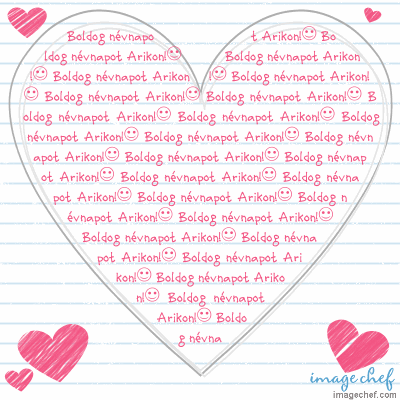 Boldog névnapo t Arikon!☺ Bo
ldog névnapot Arikon!☺ Boldog névnapot Arikon
!☺ Boldog névnapot Arikon !☺ Boldog névnapot Arikon!
☺ Boldog névnapot Arikon!☺ Boldog névnapot Arikon!☺ B
oldog névnapot Arikon!☺ Boldog névnapot Arikon!☺ Boldog
névnapot Arikon!☺ Boldog névnapot Arikon!☺ Boldog névn
apot Arikon!☺ Boldog névnapot Arikon!☺ Boldog névnap
ot Arikon!☺ Boldog névnapot Arikon!☺ Boldog névna
pot Arikon!☺ Boldog névnapot Arikon!☺ Boldog n
évnapot Arikon!☺ Boldog névnapot Arikon!☺
Boldog névnapot Arikon!☺ Boldog névna
pot Arikon!☺ Boldog névnapot Ari
kon!☺ Boldog névnapot Ariko
n!☺ Boldog névnapot
Arikon!☺ Boldo
g névna
image chef
imagechef.com